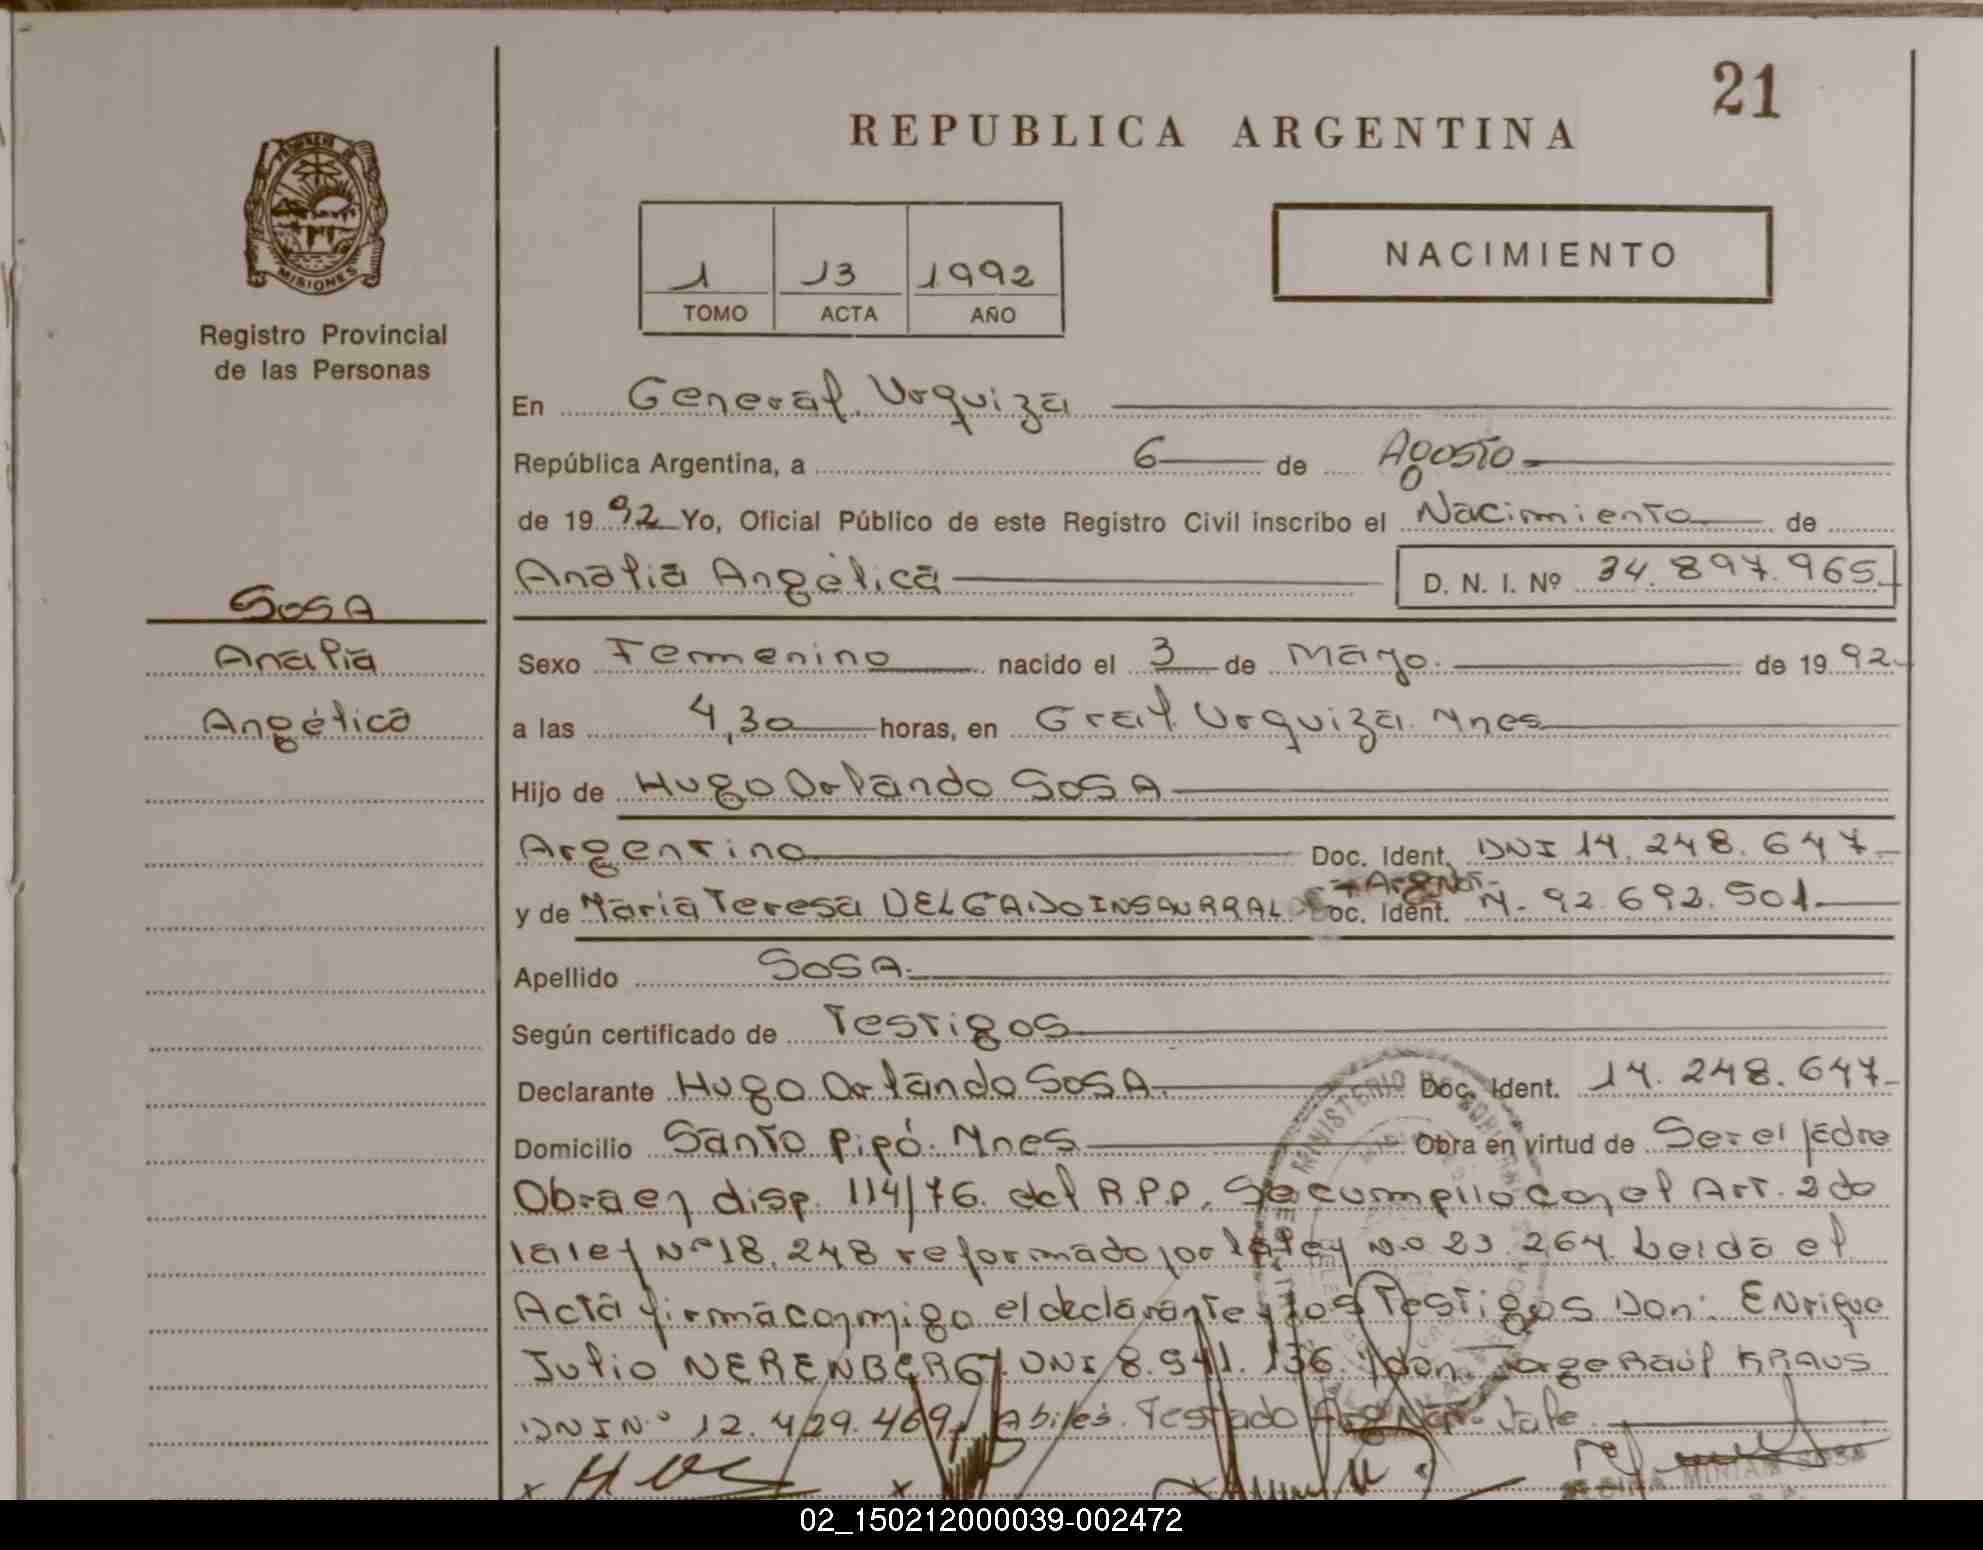 21
REPUBLICA ARGENTINA
1 13 1992
TOMO ACTA AÑO
NACIMIENTO
MISIONES
Registro Provincial
de las Personas
En General Urquiza
República Argentina, a 6 de Agosto
de 1992 Yo, Oficial Público de este Registro Civil inscribo el Nacimiento de
Analia Angélica D. N. I. Nº 34.897.965
SOSA
Analia
Angélica
Sexo Femenino nacido el 3 de Mayo de 1992
a las 4,30 horas, en Gral. Urquiza Mnes
Hijo de Hugo Orlando SOSA
Argentino Doc. Ident. DNI 14.248.647
y de Maria Teresa DELGADO INSAURRAL Doc. Ident. N. 92.692.501
Apellido SOSA
Según certificado de Testigos
Declarante Hugo Orlando SOSA Doc. Ident. 14.248.647
Domicilio Santo Pipó. Mnes Obra en virtud de Ser el padre
Obra en disp. 114/76. del R.P.P. Se cumplio con el Art. 2 de
la ley Nº 18.248 reformado por la ley N.o 23.264. Leida el
Acta firma conmigo el declarante y los Testigos Don: Enrique
Julio NERENBERG DNI 8.541.136. y don Jorge Raúl KRAUS
DNI N.º 12.429.469, Abiles. Testado Vale
MINISTERIO
MIRIAM SOSA
02_150212000039-002472